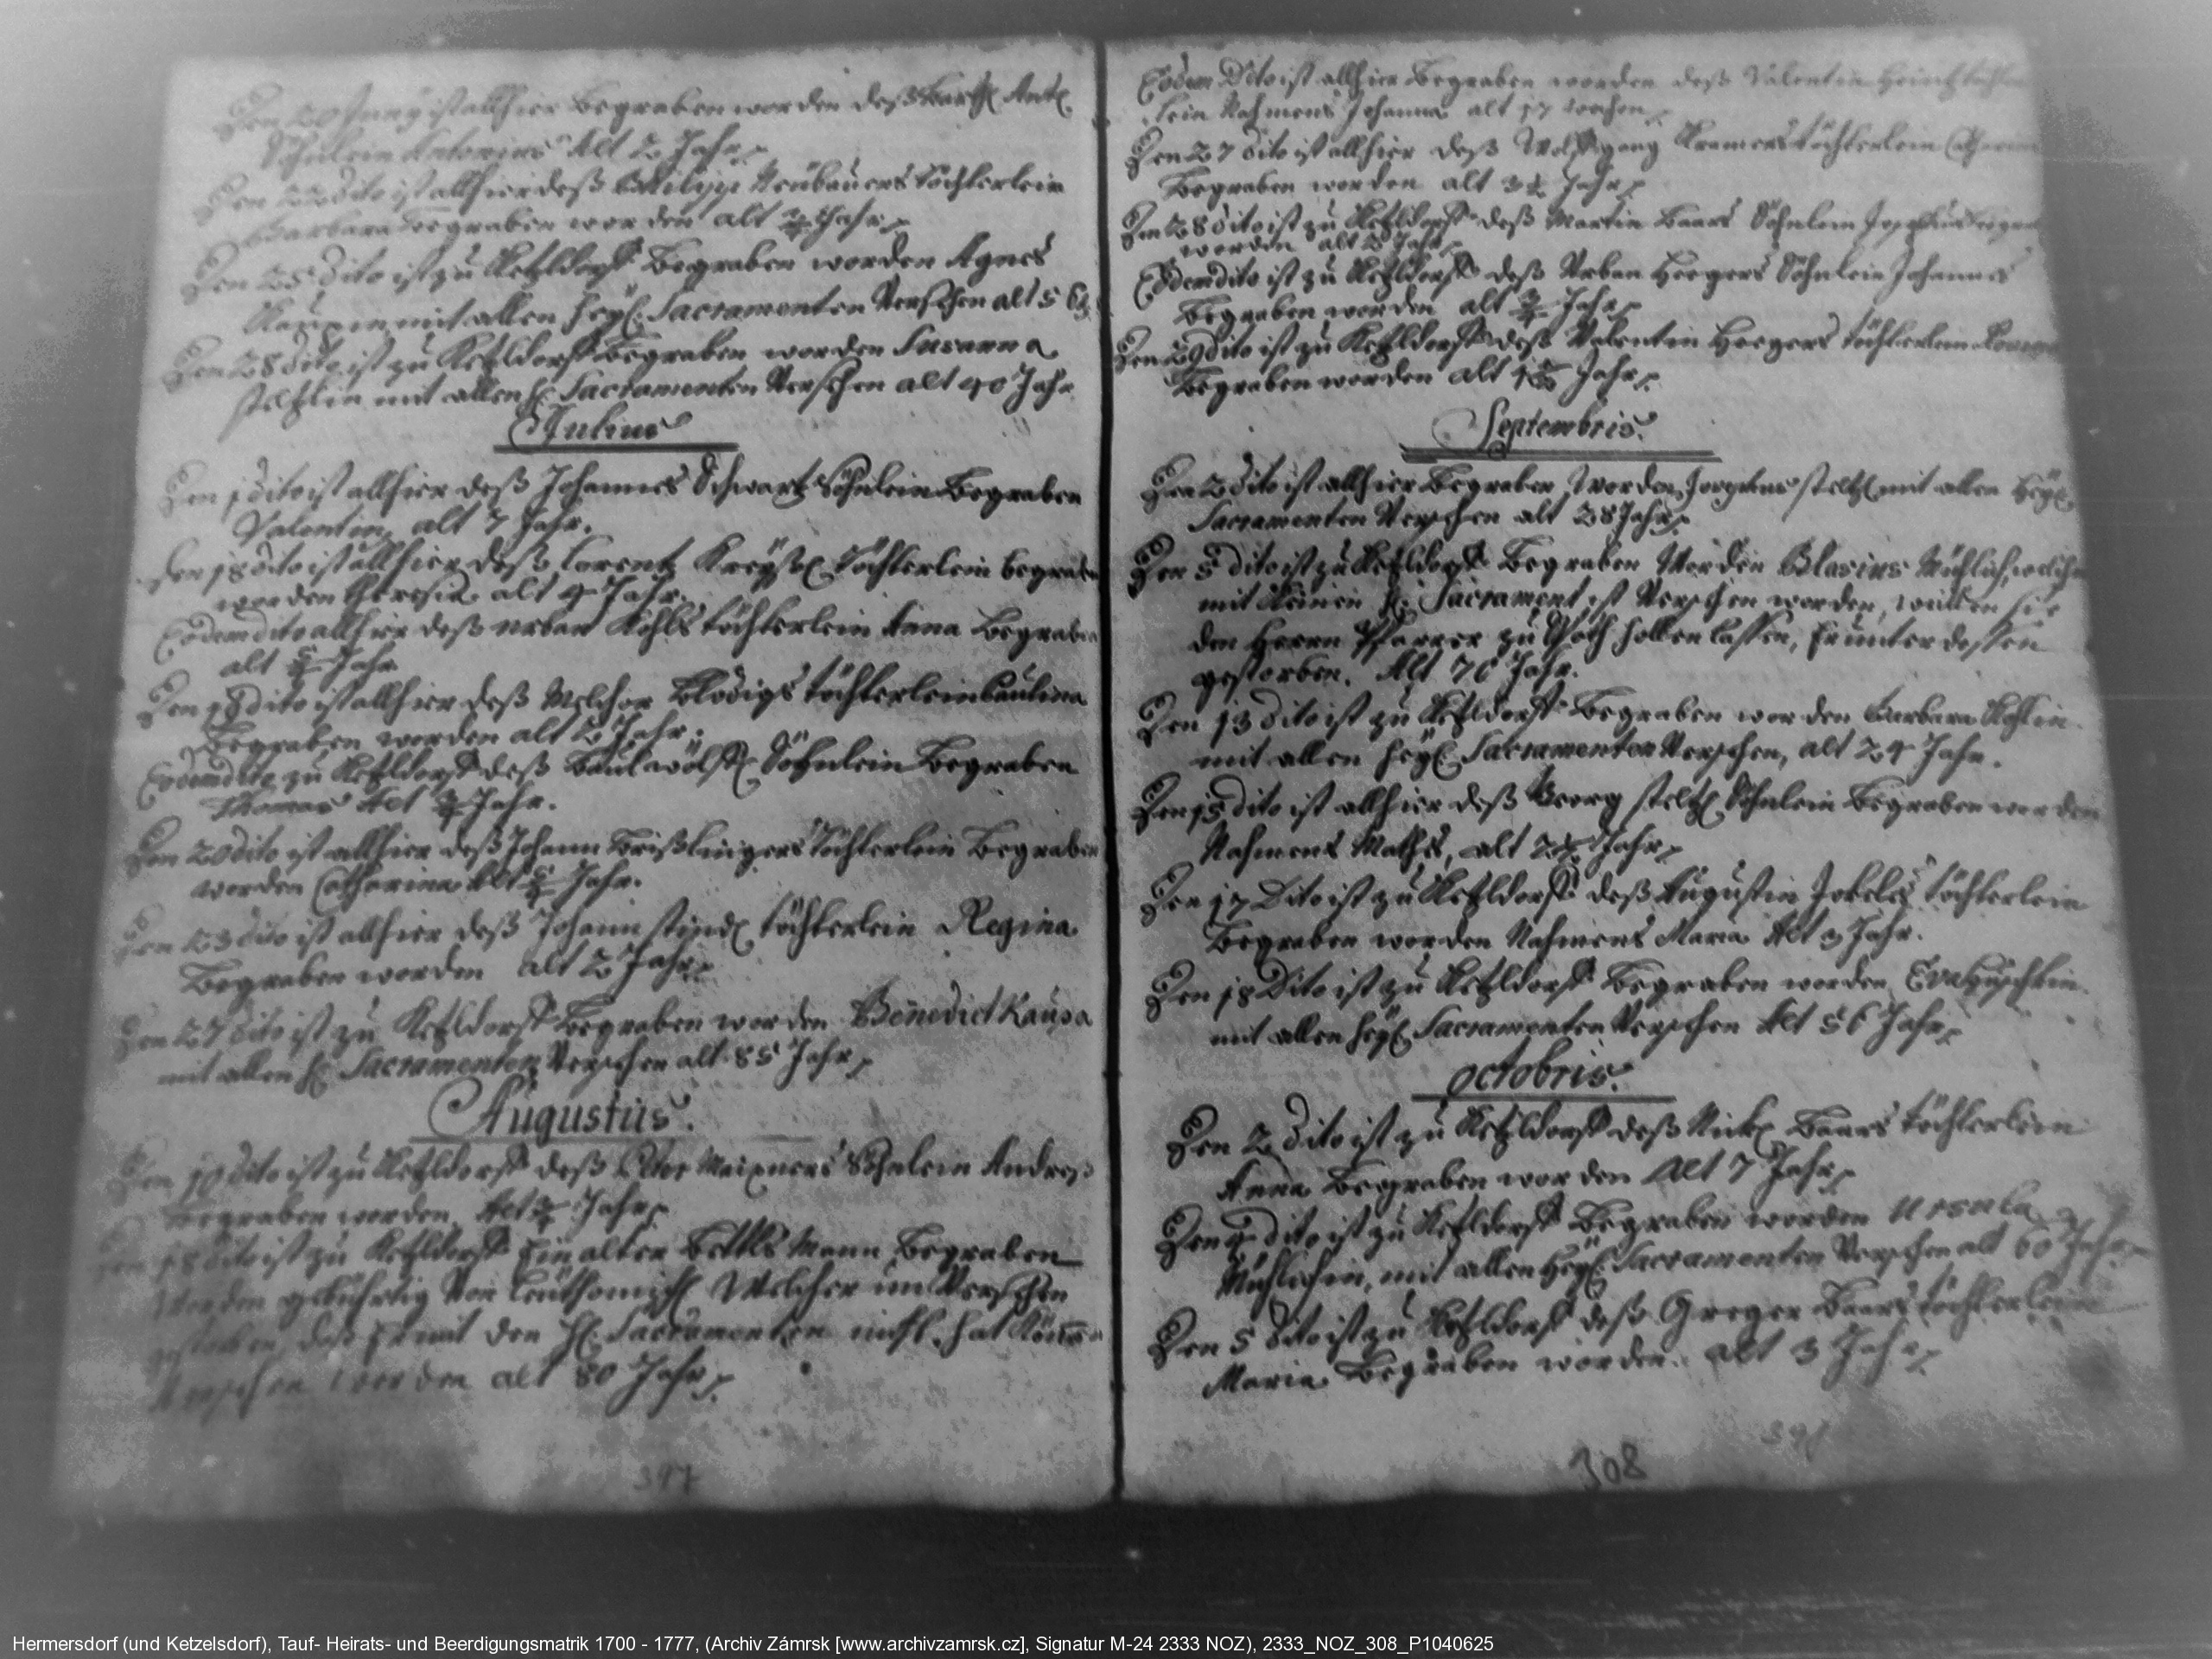 Den 20 Juny ist allhier Begraben worden deß
Söhnlein Antonius Alt 2 Jahr
Den 22 dito ist allhier deß Philipp Neubauers Töchterlein
Barbara Begraben worden alt 3/4 Jahr
Den 25 dito ist zu Ketzldorff Begraben worden Agnes
mit allen Heyl: Sacramenten Versehen alt 56
Den 28 dito ist zu Ketzldorff Begraben worden Susanna
steltzlin mit allen H: Sacramenten Versehen alt 40 Jahr
Julius
Den 1 dito ist allhier deß Johannes Schwartz Söhnlein Begraben
Valentin, alt 7 Jahr.
Den 18 dito ist allhier deß Lorentz Töchterlein begraben
worden Theresia alt 4 Jahr.
Eodem dito allhier deß urban Kohls töchterlein Anna Begraben
alt Jahr
Den dito ist allhier deß Melchor Blodigs töchterlein Paulina
Begraben worden alt 2 Jahr.
Eodem dito zu Ketzldorff deß Söhnlein Begraben
Thomas Alt 3/4 Jahr.
Den 20 dito ist allhier deß Johann Brißlingers Töchterlein Begraben
worden Catharina alt Jahr.
Den 23 dito ist allhier deß Johann töchterlein Regina
Begraben worden alt 2 Jahr
Den 27 dito ist zu Ketzldorff Begraben worden Benedict Kaupa
mit allen H: Sacramenten Versehen alt 85 Jahr
Augustus.
Den 10 dito ist zu Ketzldorff deß Söhnlein Andreß
Begraben worden, Alt Jahr
Den 18 dito ist zu Ketzldorff Ein alter Bettls Mann Begraben
Worden gebührtig Von Welcher im Versehen
gestorben, daß Er mit den H: Sacramenten nicht hat Können
Versehen werden alt 80 Jahr
397
Eodem Dito ist allhier Begraben worden deß Valentin
lein Nahmens Johanna alt 17 wochen
Den 27 dito ist allhier deß Wolffgang Kramers töchterlein
Begraben worden alt 3 Jahr
Den 28 dito ist zu Ketzldorff deß Martin Baars Söhnlein
worden alt 2 Jahr
Eodem dito ist zu Ketzldorff deß Urban Heegers Söhnlein Johannes
Begraben worden alt 3/4 Jahr
Den 29 dito ist zu Ketzldorff deß Valentin Heegers töchterlein
Begraben worden alt Jahr
Septembris.
Den 2 dito ist allhier Begraben Worden steltzl mit allen Heyl:
Sacramenten Versehen alt 28 Jahr
Den 5 dito ist zu Ketzldorff Begraben Worden Blasius Müchlich, welcher
mit Keinen H: Sacrament ist Versehen worden, weillen sie
den Herrn Pfarrer zu Spoth hollen lassen, Er unter dessen
gestorben. Alt 76 Jahr.
Den 13 dito ist zu Ketzldorff Begraben worden Barbara Kohlin
mit allen Heyl: Sacramenten Versehen, alt 24 Jahr.
Den 15 dito ist allhier deß Georg steltzl Söhnlein Begraben worden
Nahmens Mathes, alt Jahr
Den 17 Dito ist zu Ketzldorff deß Augustin Jokels töchterlein
Begraben worden Nahmens Maria Alt 3 Jahr.
Den 18 Dito ist zu Ketzldorff Begraben worden Eva
mit allen Heyl: Sacramenten Versehen Alt 56 Jahr
octobris.
Den 2 dito ist zu Ketzldorff deß Baars töchterlein
Anna Begraben worden alt 7 Jahr
Den 4 dito ist zu Ketzldorff Begraben worden Ursula
Müchlichin, mit allen Heyl: Sacramenten Versehen alt 60 Jahr
Den 5 dito ist zu Ketzldorff deß Greger Baars töchterlein
Maria Begraben worden. alt 3 Jahr
308
Hermersdorf (und Ketzelsdorf), Tauf- Heirats- und Beerdigungsmatrik 1700 - 1777, (Archiv Zámrsk [www.archivzamrsk.cz], Signatur M-24 2333 NOZ), 2333_NOZ_308_P1040625